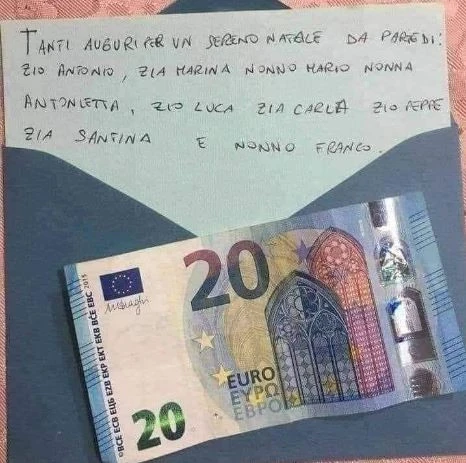 TANTI AUGURI PER UN SERENO NATALE DA PARTE DI:
ZIO ANTONIO, ZIA MARINA NONNO MARIO NONNA
ANTONIETTA, ZIO LUCA ZIA CARLA ZIO PEPPE
ZIA SANTINA E NONNO FRANCO.
20
©BCE ECB ЕЦБ EZB EKP EKT EKB BĊE EBC 2015
EURO
ΕΥΡΩ
ЕВРО
20